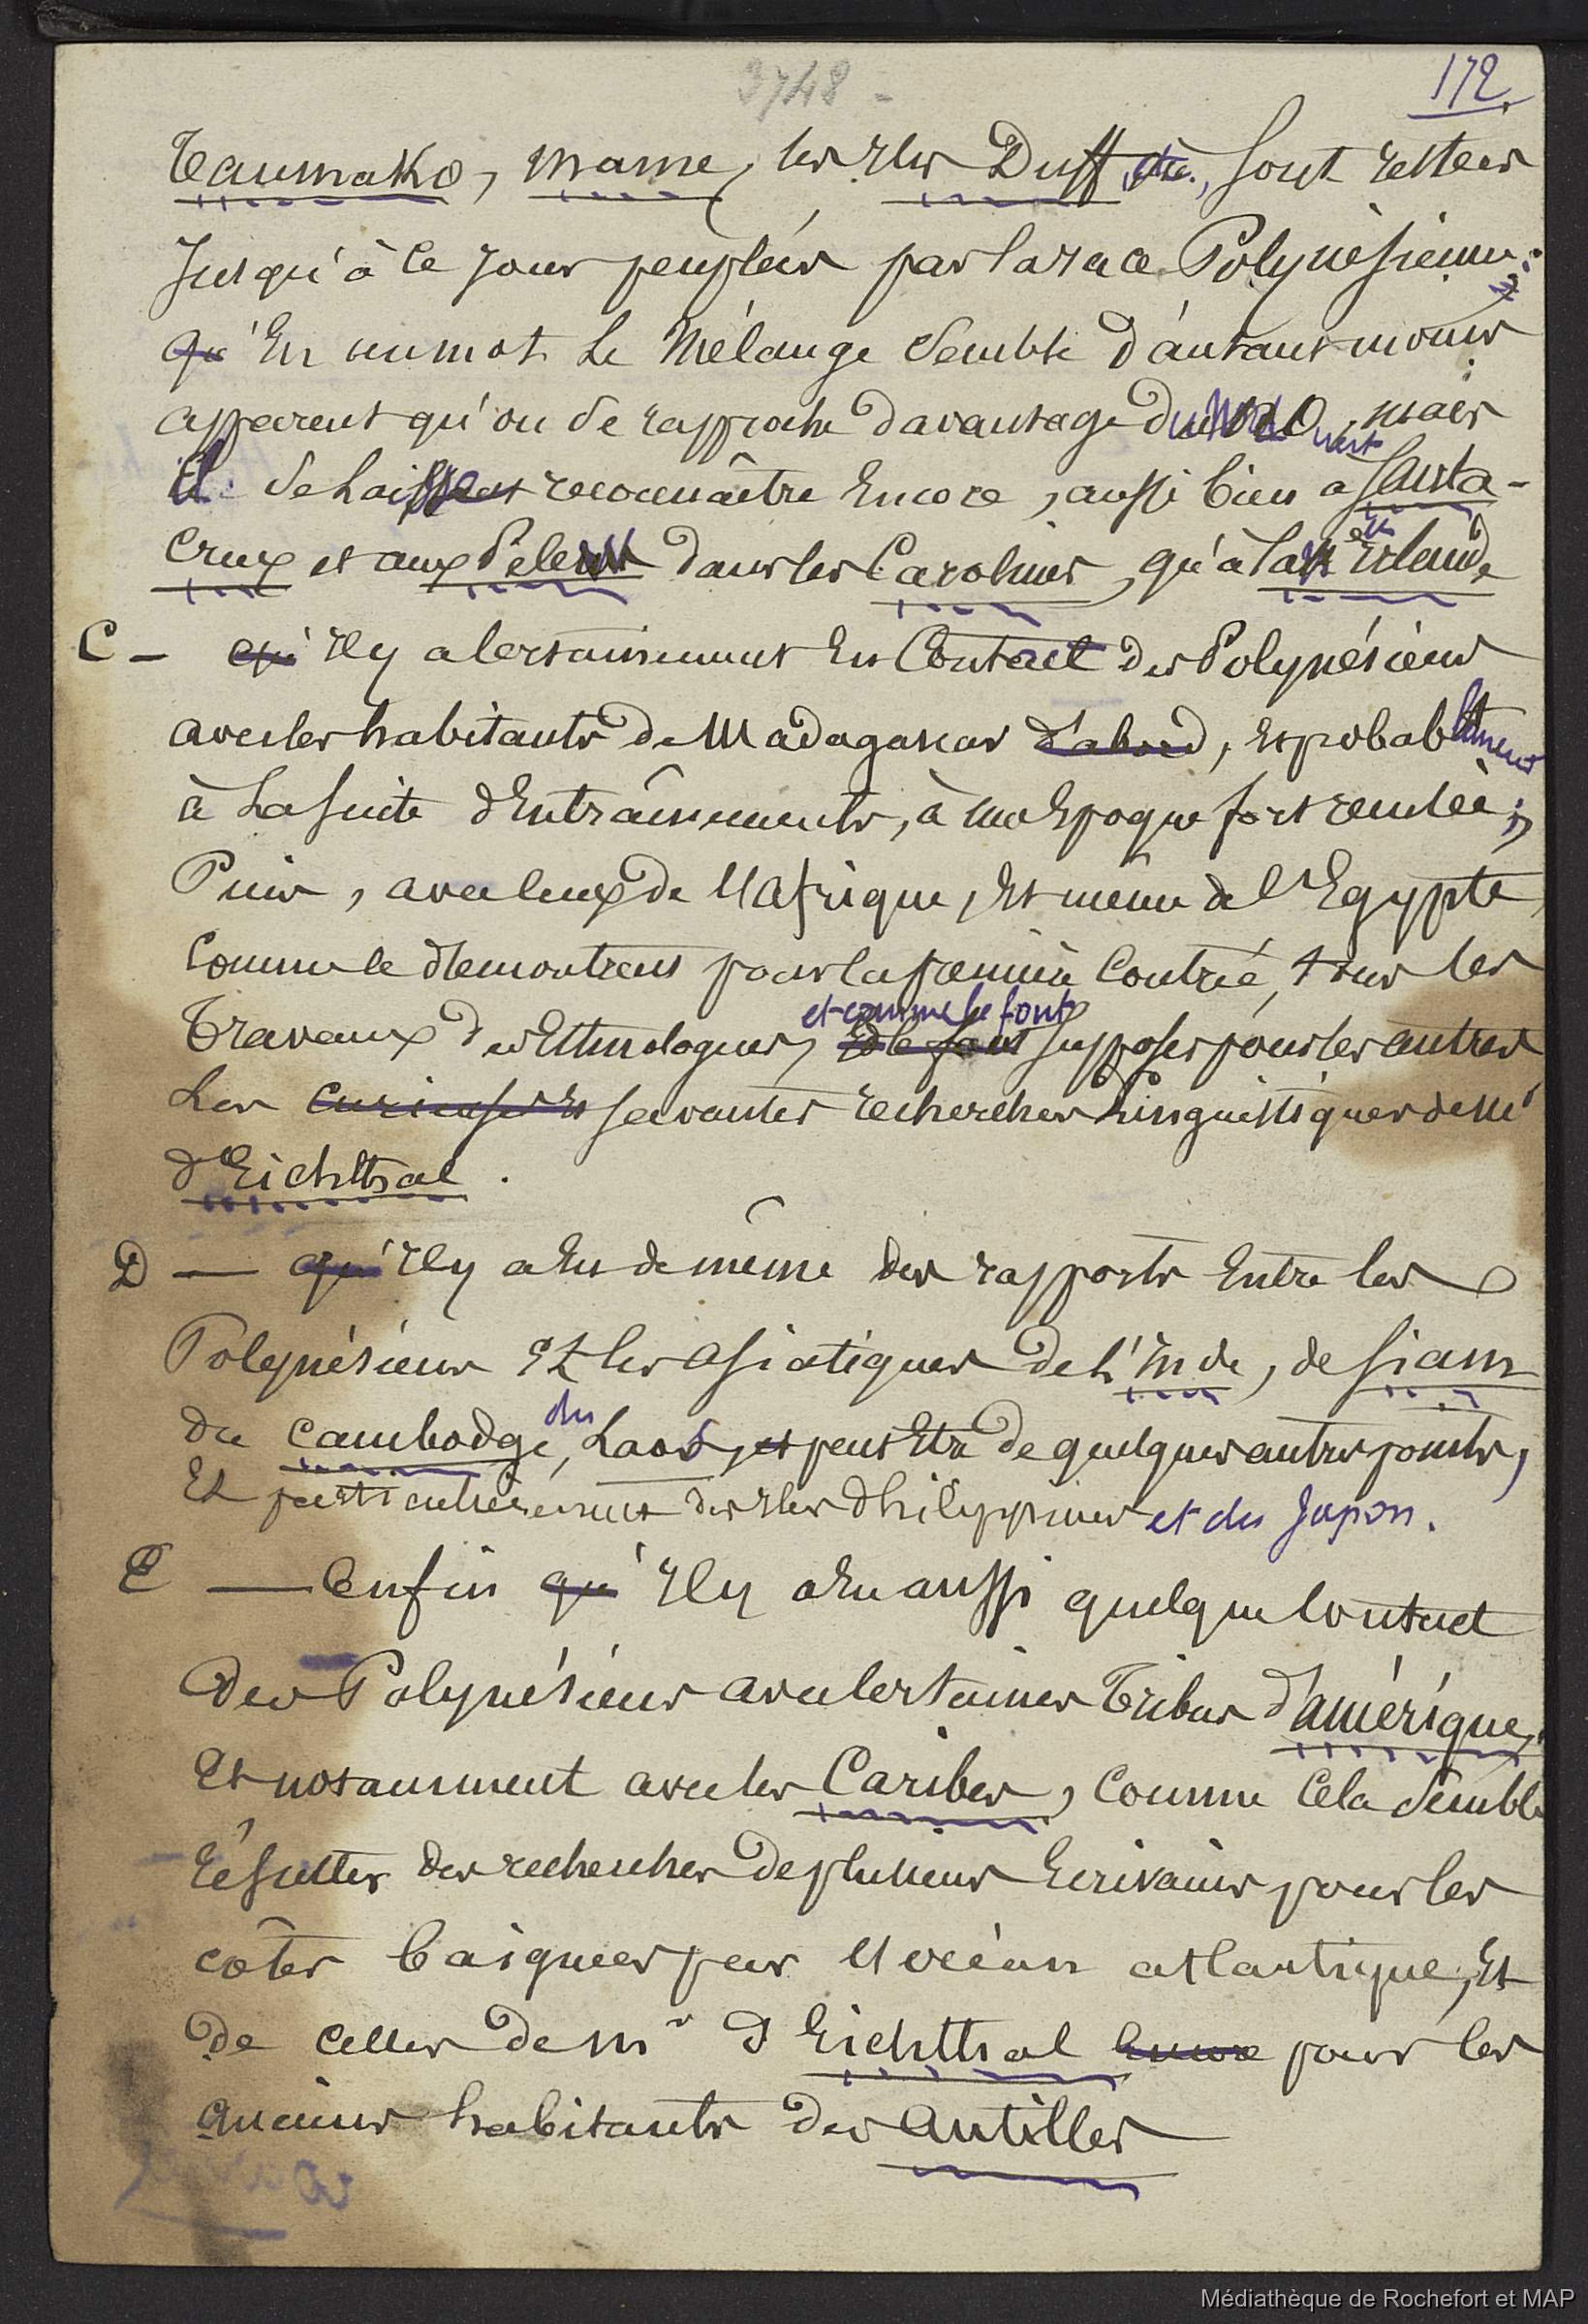 3748 -
172.
Taumako, mame, les Iles Duff, etc., sont restées
Jusqu'à ce Jour peuplées par la race Polynésienne;
qu'En un mot le Mélange semble D'autant moins
apparent qu'on se rapproche Davantage du Nord ouest, mais
il se laisse reconnaître Encore, aussi bien à Santa-
Cruz et aux Pelew Dans les Carolines, qu'à la
C - qu'Il y a certainement Eu Contact des Polynésiens
avec les habitants de Madagascar d'abord, Et probablement
à la suite d'Entraînements, à une Epoque fort reculée;
Puis, avec ceux de l'Afrique, Et même de l'Egypte,
Comme le démontrent pour la première Contrée, les
Travaux des Ethnologues, Et le font et comme le font supposer pour les autres
Les curieuses Et savantes recherches Linguistiques de Mr
d'Eichthal.
D — qu'Il y a Eu de même des rapports Entre les
Polynésiens Et les asiatiques de l'Inde, de Siam
du Cambodge, du Laos, et peut Etre de quelques autres points,
Et particulièrement des Iles Philippines et du Japon.
E — Enfin qu'Il y a Eu aussi quelque Contact
des Polynésiens avec certaines Tribus d'amérique,
Et notamment avec les Caribes, Comme Cela semble
Résulter des recherches de plusieurs Ecrivains pour les
côtes baignées par l'océan atlantique, Et
de celles de Mr d'Eichthal Encore pour les
anciens habitants des Antilles
Médiathèque de Rochefort et MAP